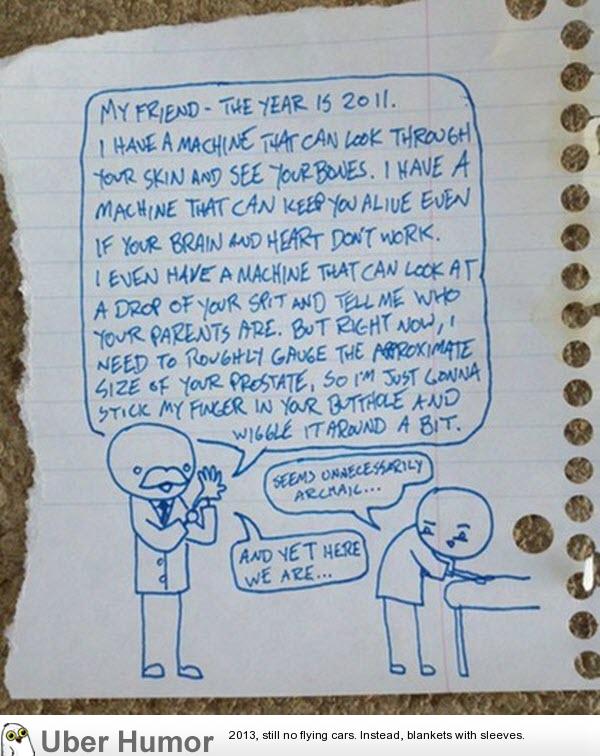 MY FRIEND - THE YEAR IS 2011.
I HAVE A MACHINE THAT CAN LOOK THROUGH
YOUR SKIN AND SEE YOUR BONES. I HAVE A
MACHINE THAT CAN KEEP YOU ALIVE EVEN
IF YOUR BRAIN AND HEART DON'T WORK.
I EVEN HAVE A MACHINE THAT CAN LOOK AT
A DROP OF YOUR SPIT AND TELL ME WHO
YOUR PARENTS ARE. BUT RIGHT NOW, I
NEED TO ROUGHLY GAUGE THE APPROXIMATE
SIZE OF YOUR PROSTATE, SO I'M JUST GONNA
STICK MY FINGER IN YOUR BUTTHOLE AND
WIGGLE IT AROUND A BIT.
SEEMS UNNECESSARILY
ARCHAIC...
AND YET HERE
WE ARE...
Uber Humor
2013, still no flying cars. Instead, blankets with sleeves.